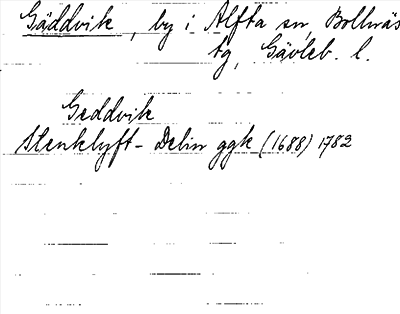 Gäddvik, by i Alfta sn, Bollnäs
tg, Gävleb. l.
Geddvik
Stenklyft-Delin ggk (1688) 1782